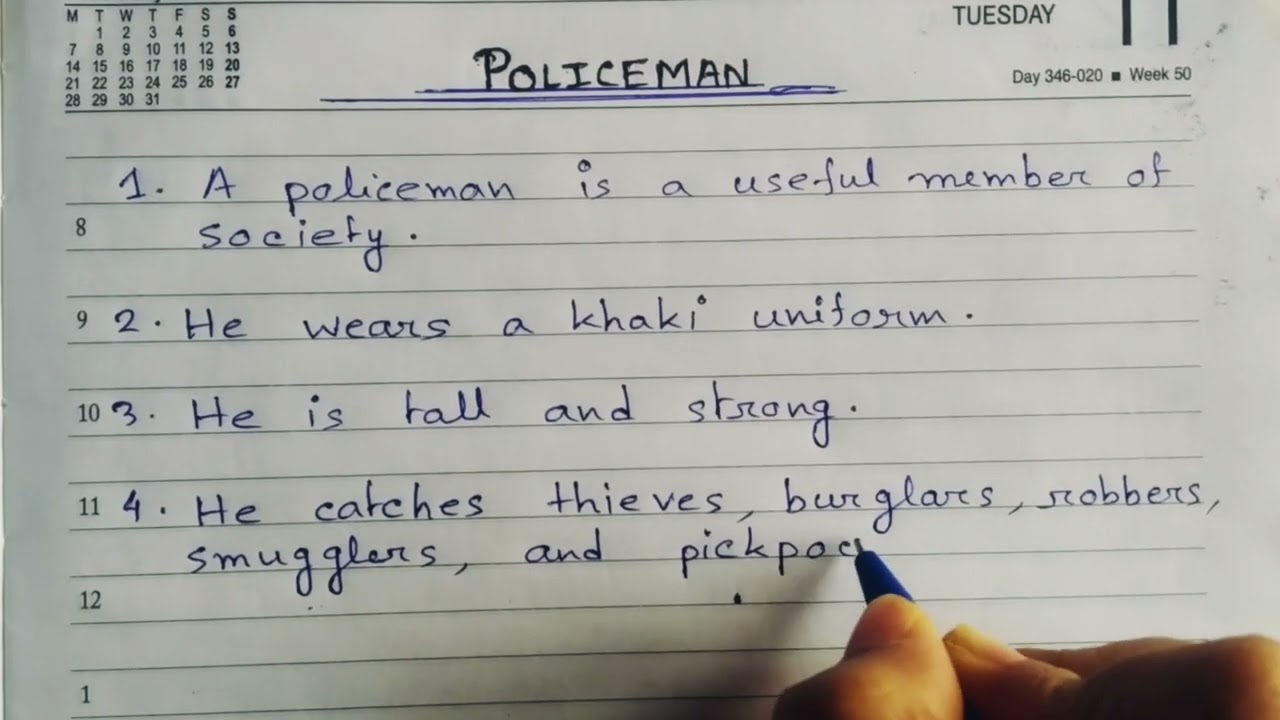 M T W T F S S
1 2 3 4 5 6
7 8 9 10 11 12 13
14 15 16 17 18 19 20
21 22 23 24 25 26 27
28 29 30 31
TUESDAY 11
Day 346-020 ■ Week 50
POLICEMAN
1. A policeman is a useful member of
8 society.
9 2. He wears a khaki uniform.
10 3. He is tall and strong.
11 4. He catches thieves, burglars, robbers,
smugglers, and pickpoc
12
1